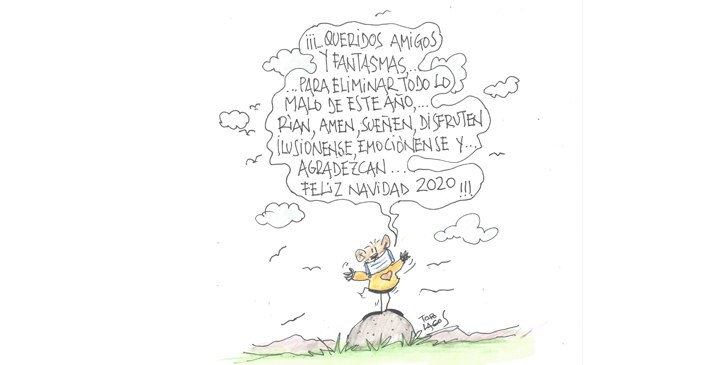 ¡¡¡...QUERIDOS AMIGOS
Y FANTASMAS...
...PARA ELIMINAR TODO LO
MALO DE ESTE AÑO,...
RIAN, AMEN, SUEÑEN, DISFRUTEN
ILUSIONENSE, EMOCIÓNENSE Y...
AGRADEZCAN...
FELIZ NAVIDAD 2020 !!!
LAGOS